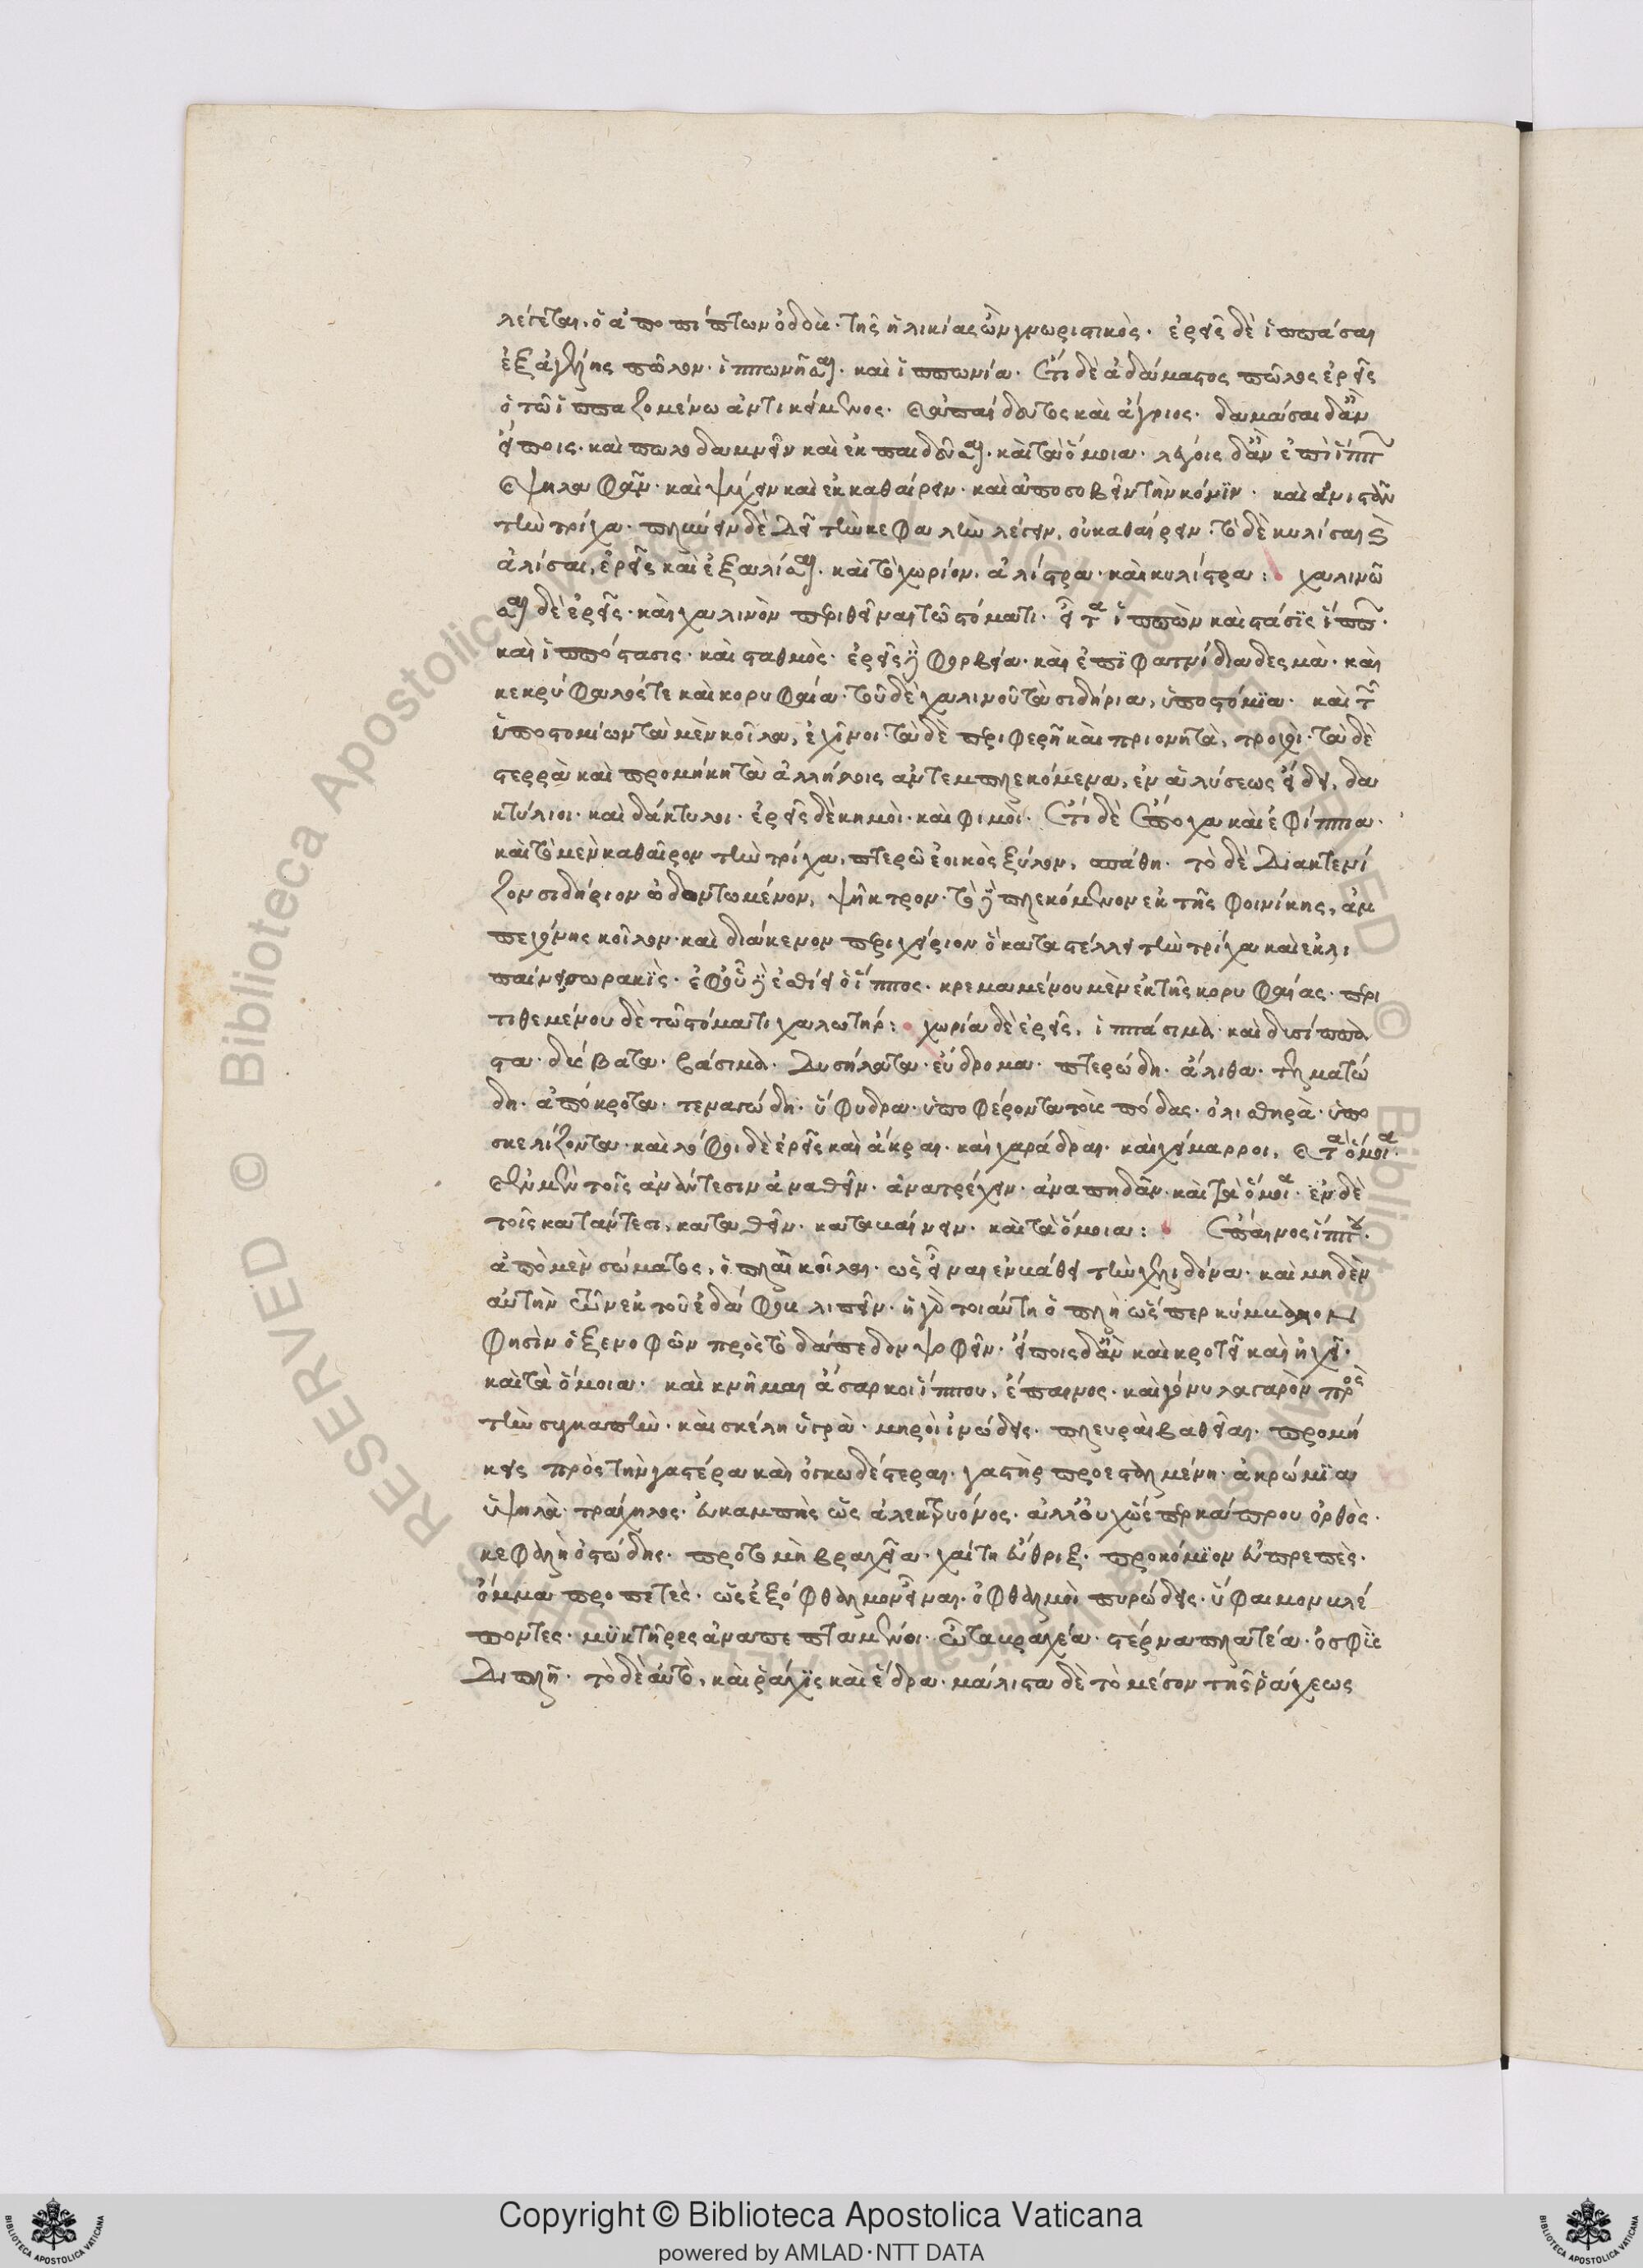 λέγεται. ὁ ἀποπίπτων ὀδοὺς. τῆς ἡλικίας ὢν γνωριστικὸς. ἐρεῖς δὲ ἱππάσαι
ἐξ ἀγέλης πῶλον. ἱππωνῆσαι. καὶ ἱππωνία. ἔτι δὲ ἀδάμαστος πῶλος ἐρεῖς
ὁ τῶ ἱππαζομένω ἀντικείμενος. καὶ ἀπαίδευτος καὶ ἄγριος. δαμάσαι δ' ἂν
εἴποις. καὶ πωλοδαμνεῖν καὶ ἐκπαιδεῦσαι. καὶ τὰ ὅμοια. λέγοις δ' ἂν ἐπὶ ἵππ
καὶ ψηλαφᾶν. καὶ ψήχειν καὶ ἐκκαθαίρειν. καὶ ἀποσοβεῖν τὴν κόνιν. καὶ ἀνιστᾶν
τὴν τρίχα. πλύνειν δὲ δεῖ τὴν κεφαλὴν λέγειν, οὐ καθαίρειν. τὸ δὲ κυλίσαι καὶ
ἀλίσαι, ἐρεῖς καὶ ἐξαλίσαι. καὶ τὸ χωρίον. ἀλίστρα. καὶ κυλίστρα: χαλινῶ
σαι δὲ ἐρεῖς. καὶ χαλινὸν περιθεῖναι τῶ στόματι. εἶτα ἱππὼν καὶ στάσις ἵππ.
καὶ ἱππόστασις. καὶ σταθμὸς. ἐρεῖς δὲ φορβεία. καὶ ἐπιφατνίδια δεσμὰ. καὶ
κεκρύφαλός τε καὶ κορυφαία. τοῦ δὲ χαλινοῦ τὰ σιδήρια, ὑποστόμια. καὶ τῶν
ὑποστομίων τὰ μὲν κοῖλα, ἐχῖνοι. τὰ δὲ περιφερῆ καὶ πριονητὰ, τροχοὶ. τὰ δὲ
στερρὰ καὶ προμήκη τὰ ἀλλήλοις ἀντεμπλεκόμενα, ἐν ἁλύσεως εἴδει, δα
κτύλιοι. καὶ δάκτυλοι. ἐρεῖς δὲ κημοὶ. καὶ φιμοὶ. ἔτι δὲ ἔποχα καὶ ἐφίππια.
καὶ τὸ μὲν καθαῖρον τὴν τρίχα, πτερῶ ἐοικὸς ξύλον, σπάθη. τὸ δὲ διακτενί
ζον σιδήριον ὠδοντωμένον, ψῆκτρον. τὸ δὲ πλεκόμενον ἐκ τῆς φοινίκης, ἀμ
πεχόνης κοῖλον. καὶ διάκενον περιχείριον ὃ καταστέλλει τὴν τρίχα καὶ ἐκλι
παίνει σωρακὶς. ἐφ' οὗ δὲ ἐσθίει ὁ ἵππος. κρεμαμένου μὲν ἐκ τῆς κορυφαίας. περι
τιθεμένου δὲ τῶ στόματι χαλωτήρ: χωρία δὲ ἐρεῖς, ἱππάσιμα. καὶ δυσίππα
στα. δύσβατα. βάσιμα. δυσήλατα. εὔδρομα. πτερώδη. ἄλιθα. τελματώ
δη. ἀπόκροτα. τεναγώδη. ὕφυδρα. ὑποφέροντα τοὺς πόδας. ὀλισθηρὰ. ὑπο
σκελίζοντα. καὶ λόφοι δὲ ἐρεῖς καὶ ἄκραι. καὶ χαράδραι. καὶ χείμαρροι, καὶ τὰ ὅμοια.
καὶ ἐν μὲν τοῖς ἀνάντεσιν ἀναθεῖν. ἀνατρέχειν. ἀναπηδᾶν. καὶ τὰ ὅμοια. ἐν δὲ
τοῖς κατάντεσι, καταθεῖν. καταβαίνειν. καὶ τὰ ὅμοια: ἔπαινος ἵππου.
ἀπὸ μὲν σώματος, ὁπλαὶ κοῖλαι. ὡς εἶναι ἐν βάθει τὴν χελιδόνα. καὶ μηδὲν
αὐτὴν ἐκ τοῦ ἐδάφους λιπεῖν. ἡ γὰρ τοιαύτη ὁπλὴ ὥσπερ κύμβαλον
φησὶν ὁ ξενοφῶν πρὸς τὸ δάπεδον ψοφεῖν. εἴποις δ' ἂν καὶ κροτεῖ καὶ ἠχεῖ.
καὶ τὰ ὅμοια. καὶ κνῆμαι ἄσαρκοι ἵππου, ἔπαινος. καὶ γόνυ λαγαρὸν πρὸς
τὴν συγκαμπὴν. καὶ σκέλη ὑγρὰ. μηροὶ ἰνώδεις. πλευραὶ βαθεῖαι. προμή
κεις πρὸς τὴν γαστέρα καὶ ὀγκωδέστεραι. γαστὴρ προεσταλμένη. ἀκρώμια
ὑψηλὰ. τράχηλος. εὐκαμπὴς ὡς ἀλεκτρυόνος. ἀλλ' οὐχ ὥσπερ κάπρου ὀρθὸς.
κεφαλὴ ὀστώδης. προτομὴ βραχεῖα. χαίτη εὔθριξ. προκόμιον εὐπρεπὲς.
ὄμμα προπετὲς. ὡς ἐξόφθαλμον εἶναι. ὀφθαλμοὶ πυρώδεις. ὕφαιμον βλέ
ποντες. μυκτῆρες ἀναπεπταμένοι. ὦτα βραχέα. στέρνα πλατέα. ὀσφὺς
διπλῆ. τὸ δὲ αὐτὸ, καὶ ῥάχις καὶ ἕδρα. μάλιστα δὲ τὸ μέσον τῆς ῥάχεως
Copyright © Biblioteca Apostolica Vaticana
powered by AMLAD·NTT DATA